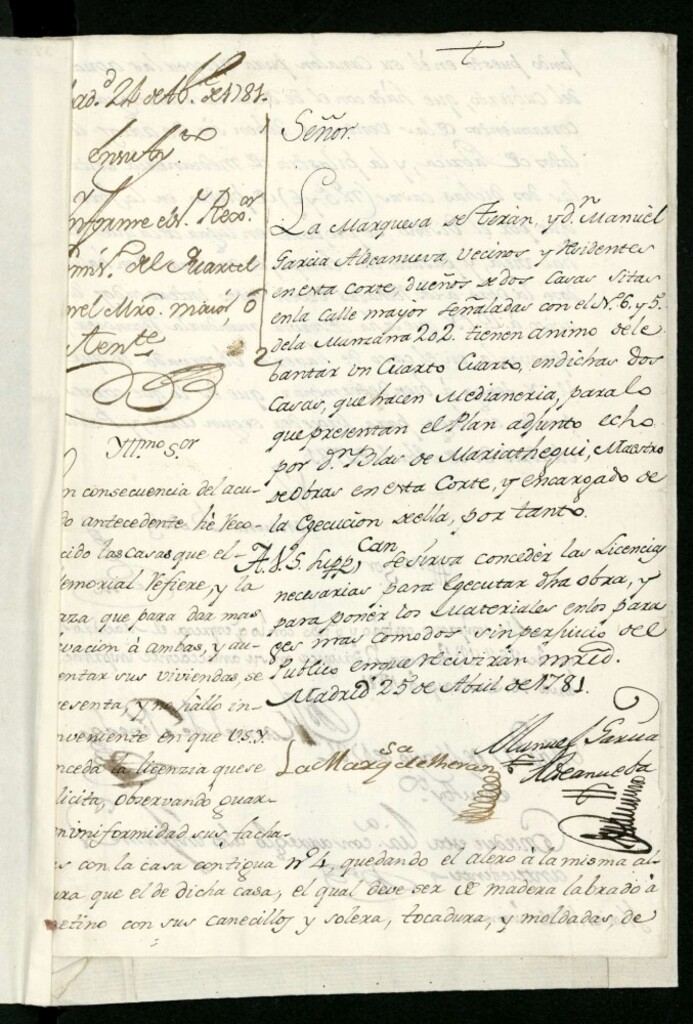 ad.d 24 de Ab.l de 1781.
Informe el S.r Rexor
del Quartel
mayor, ô
Tente
Yllmo S.or
n consecuencia del acu-
do antecedente hè reco-
cido las casas que el
emorial refiere, y la
aza que para dar mas
vacion â ambas, y au-
entar sus viviendas, se
esenta, y no hallo in-
nveniente en que V.S.Y.
nceda la licenzia que se
licita, observando guar-
uniformidad sus facha-
s con la casa contigua nº 4 quedando el alero â la misma al-
ura que el de dicha casa, el qual deve ser de madera labrado â
etino con sus canecillos y solera, tocadura, y moldadas, de
Señor
La Marquesa de Terán, y d.n Manuel
Garcia Aldeanueva, Vecinos y Residentes
en esta Corte, dueños de dos Casas sitas
en la Calle mayor señaladas con el Nº. 6. y 5.
de la Manzana 202. tienen animo de le
bantár un Cuarto Cuarto, en dichas dos
Casas, que hacen Medianeria, para lo
que presentan el Plan adjunto echo
por d.n Blas de Mariathegui, Maestro
de Obras en esta Corte, y encargado de
la Egecucion de ella, por tanto.
A V.S. Supp.can se sirva conceder las Licencias
necesarias para Egecutar dha obra, y
para poner los Materiales en los para
ges mas comodos, sin perjuicio del
Publico en que recivirán mrd.
Madrid 25 de Abril de 1781.
La Marq.sa de Theran
Manuel Garcia
Aldeanueba